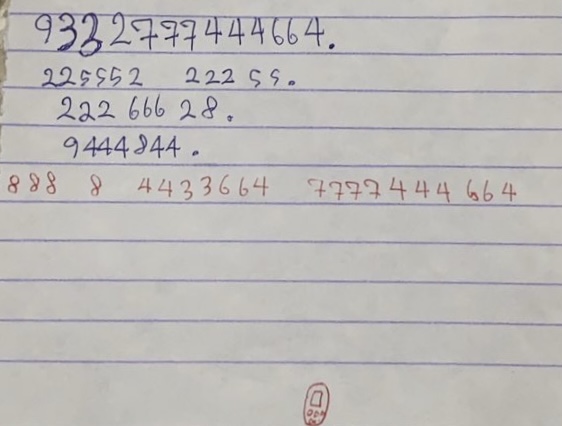 9332777444664.
225552 222 55.
222 666 28.
9444844.
888 8 4433664 7777444 664